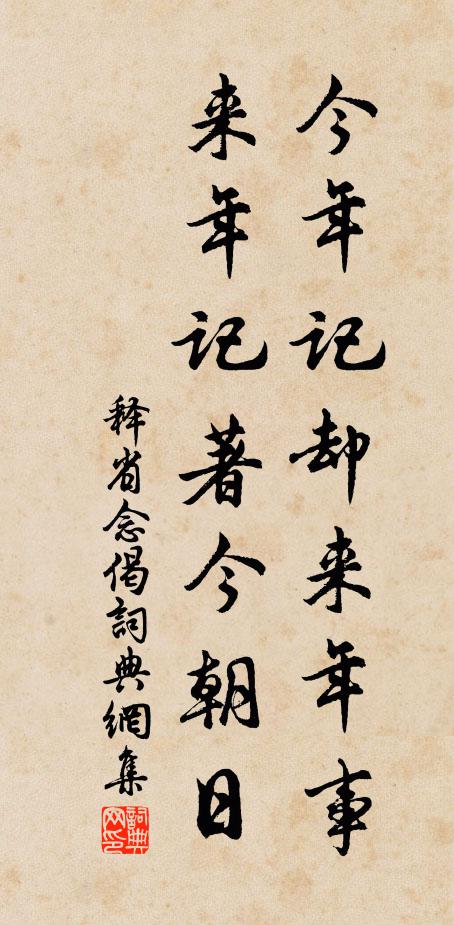 今年记却来年事
来年记著今朝日
释省念偈詞典網集
詞典网印